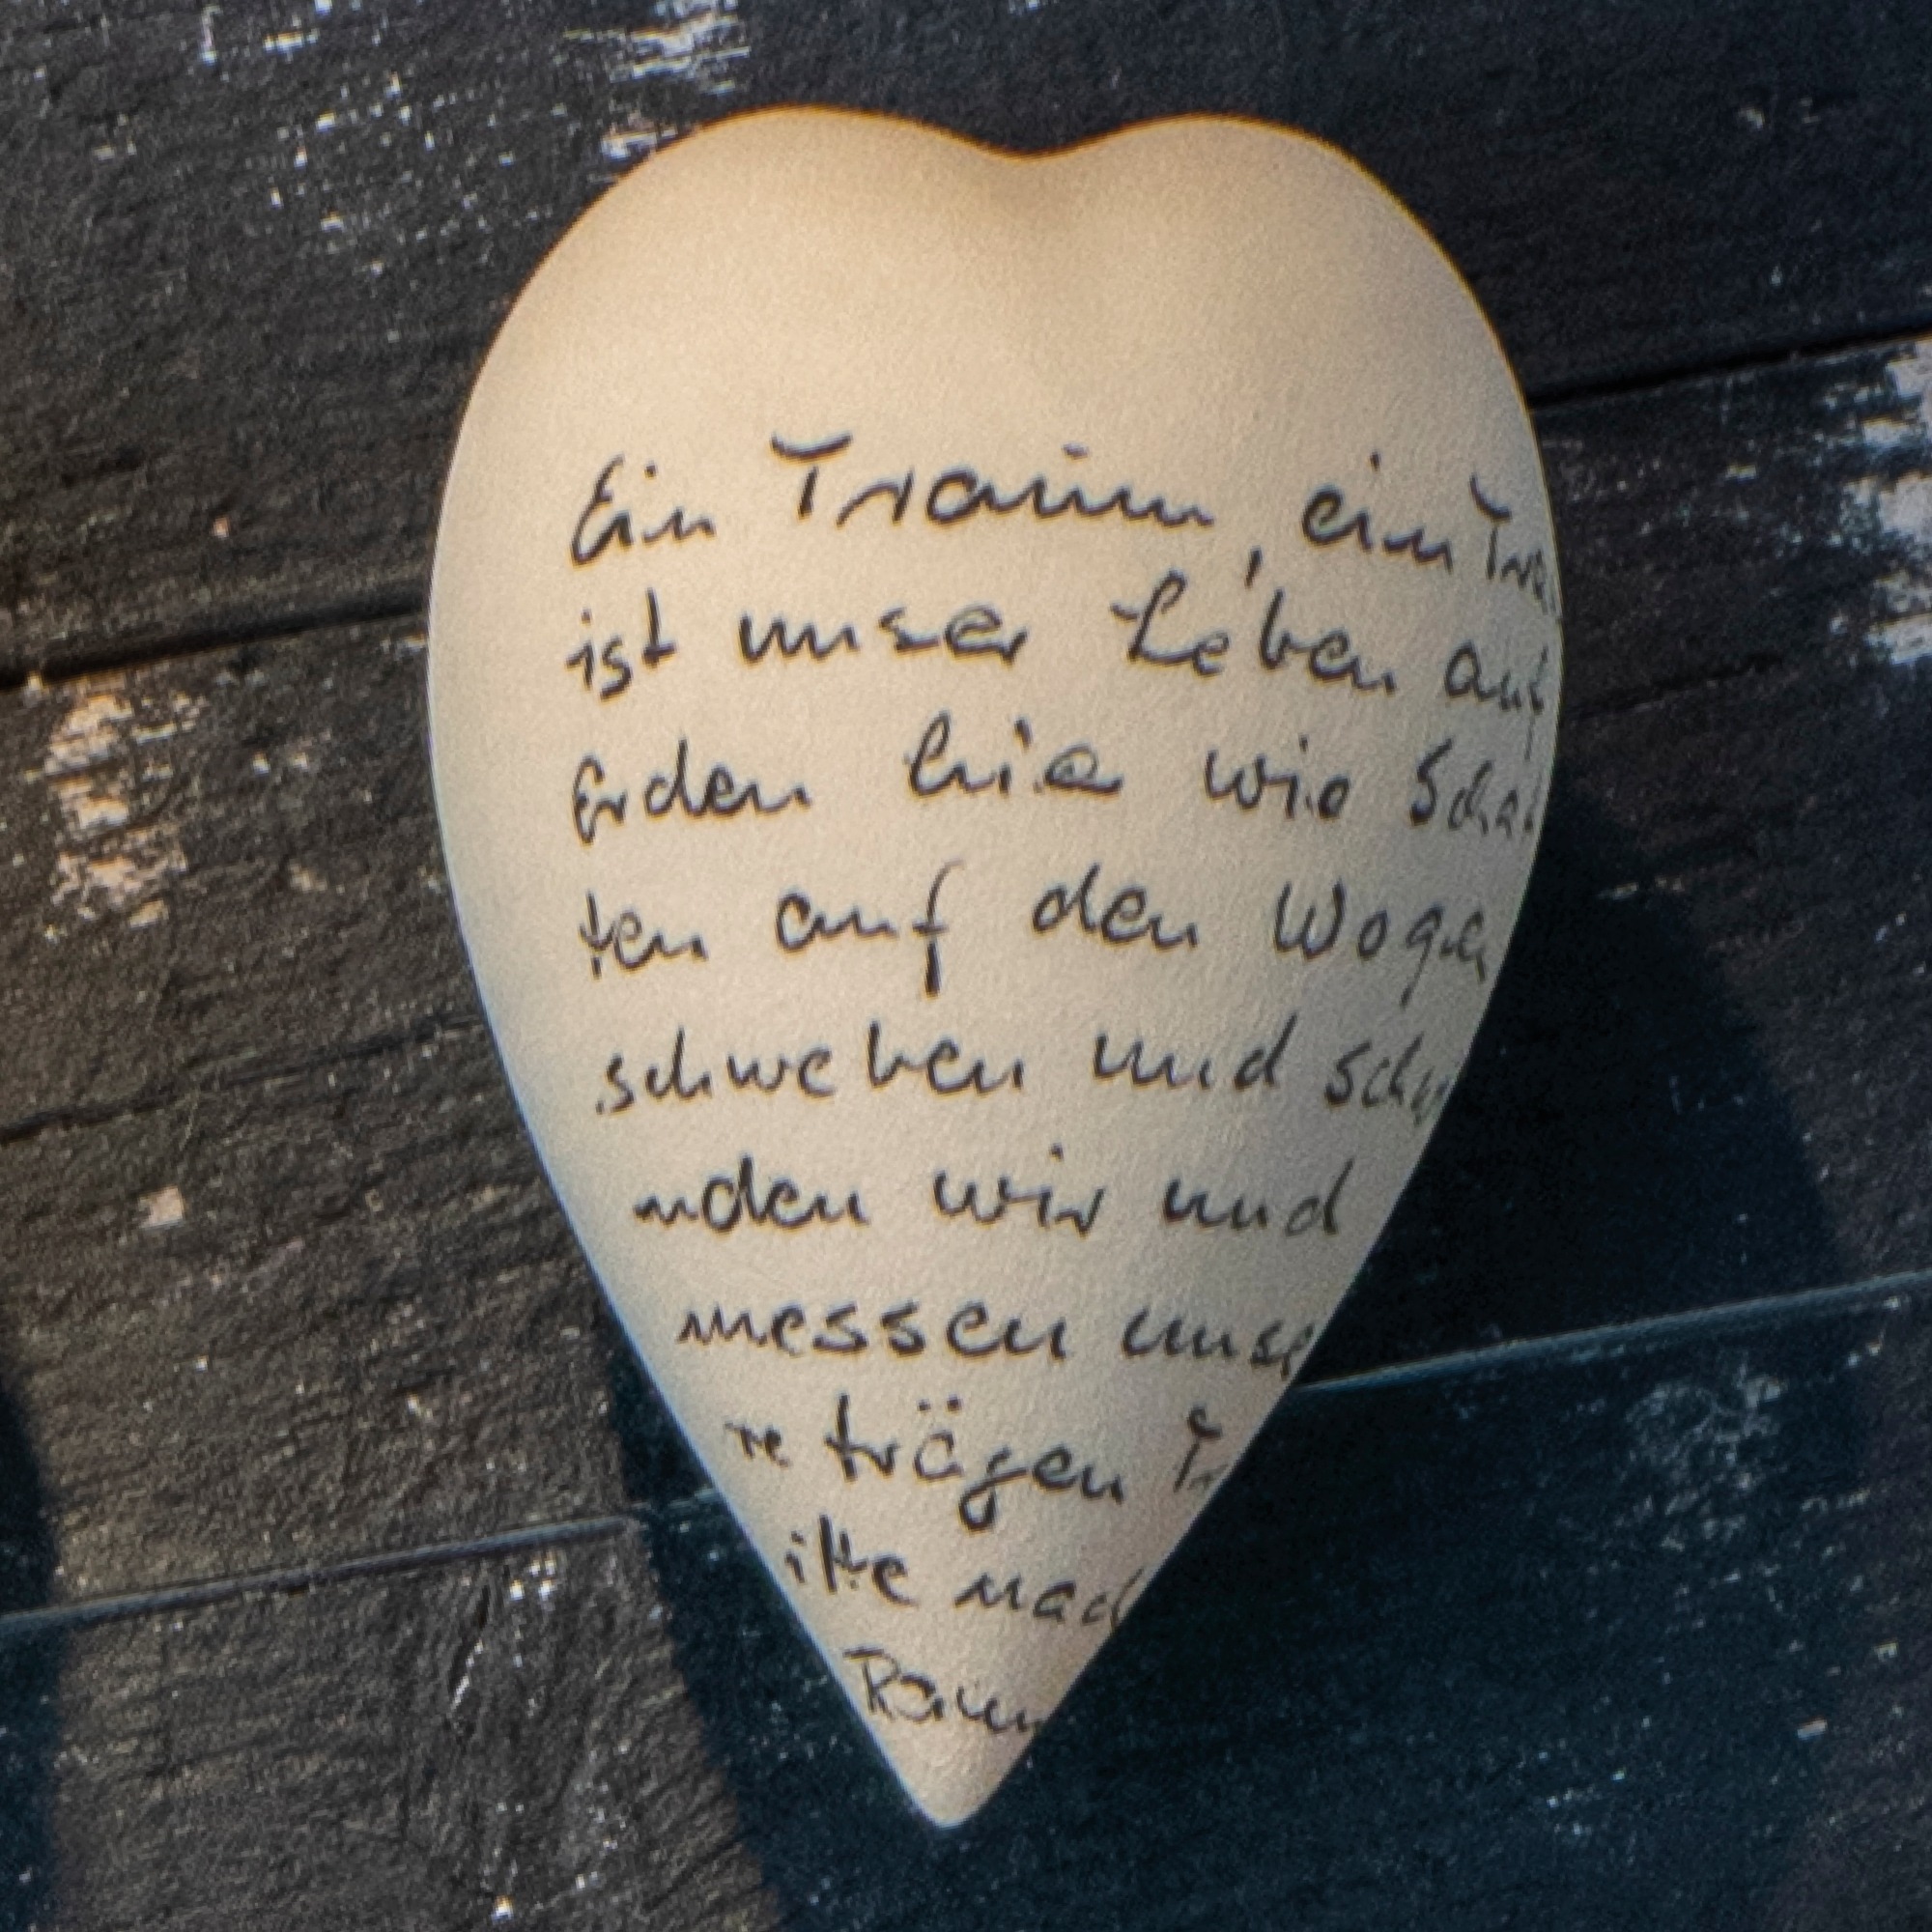 Ein Traum, ein Tra
ist unser Leben auf
Erden hie wie Schat
ten auf den Wogen
schweben und schw
nden wir und
messen unse
re trägen Tr
itte nach
Raum